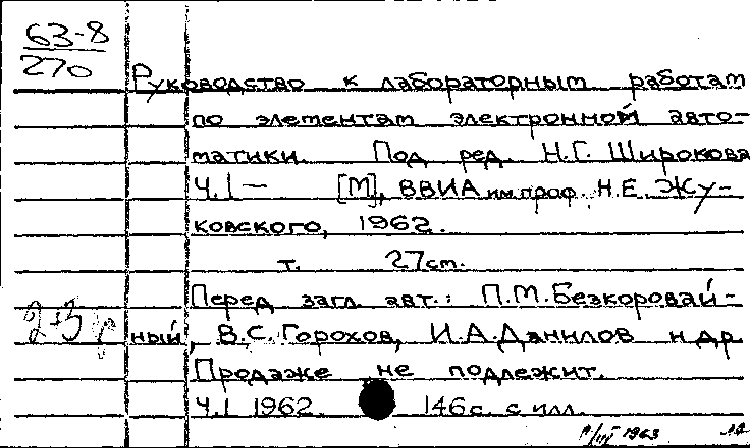 63-8
270
Руководство к лабораторным работам
по элементам электронной авто-
матики. Под ред. Н.Г. Широкова
Ч.1 — [М], ВВИА им.проф. Н.Е. Жу-
ковского, 1962.
т. 27см.
Перед загл. авт.: П.М.Безкоровай-
ный, В.С.Горохов, И.А.Данилов и др.
Продаже не подлежит.
Ч.1 1962. 146с. с илл.
1963